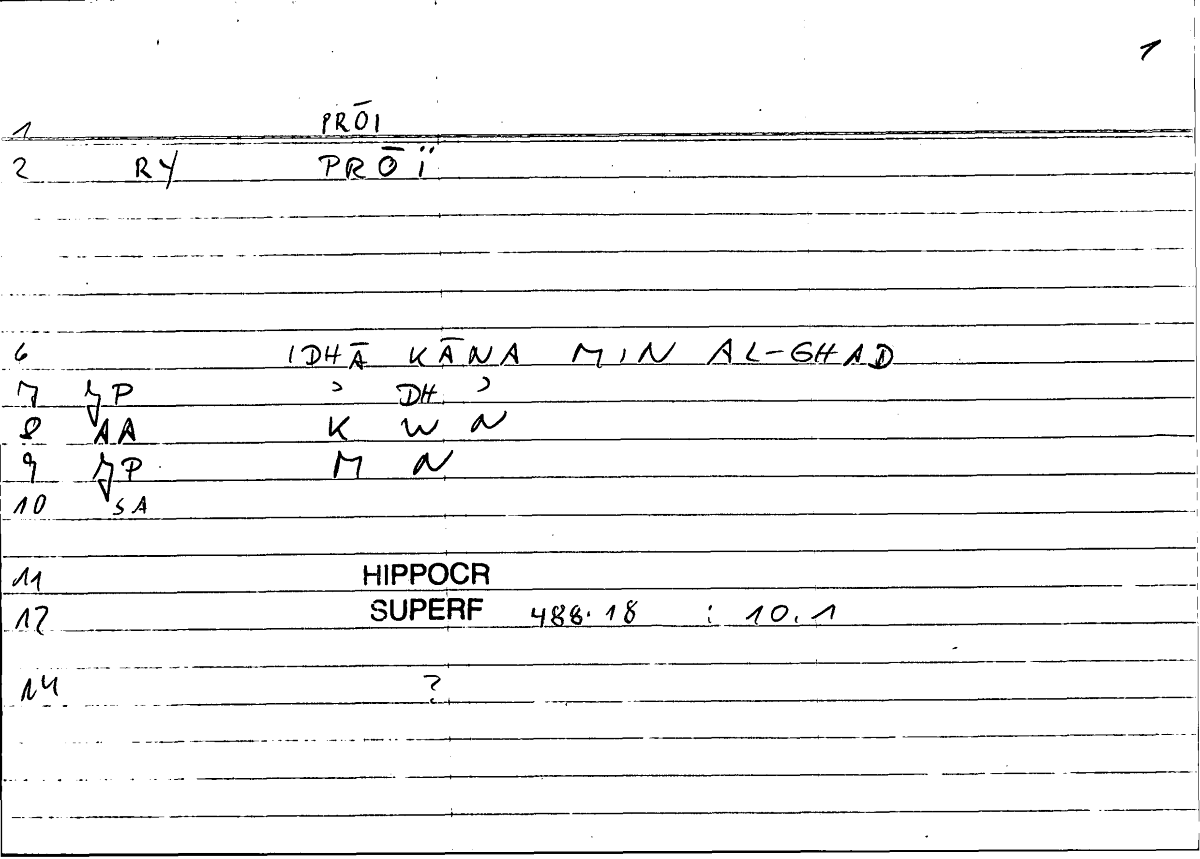 1
1 PRŌI
2 RY PRŌÏ
6 IDHĀ KĀNA MIN AL-GHAD
7 P ʾ DH ʾ
8 AA K W N
9 P M N
10 SA
11 HIPPOCR
12 SUPERF 488.18 : 10.1
14 ?